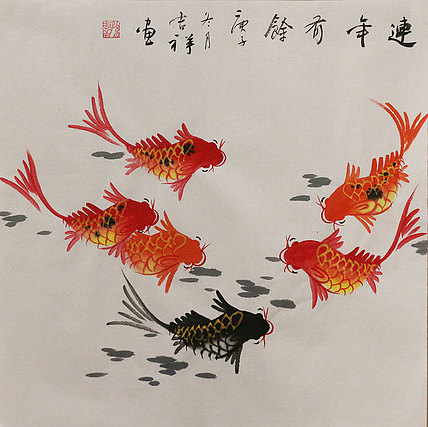 連年有餘庚子冬月吉祥画